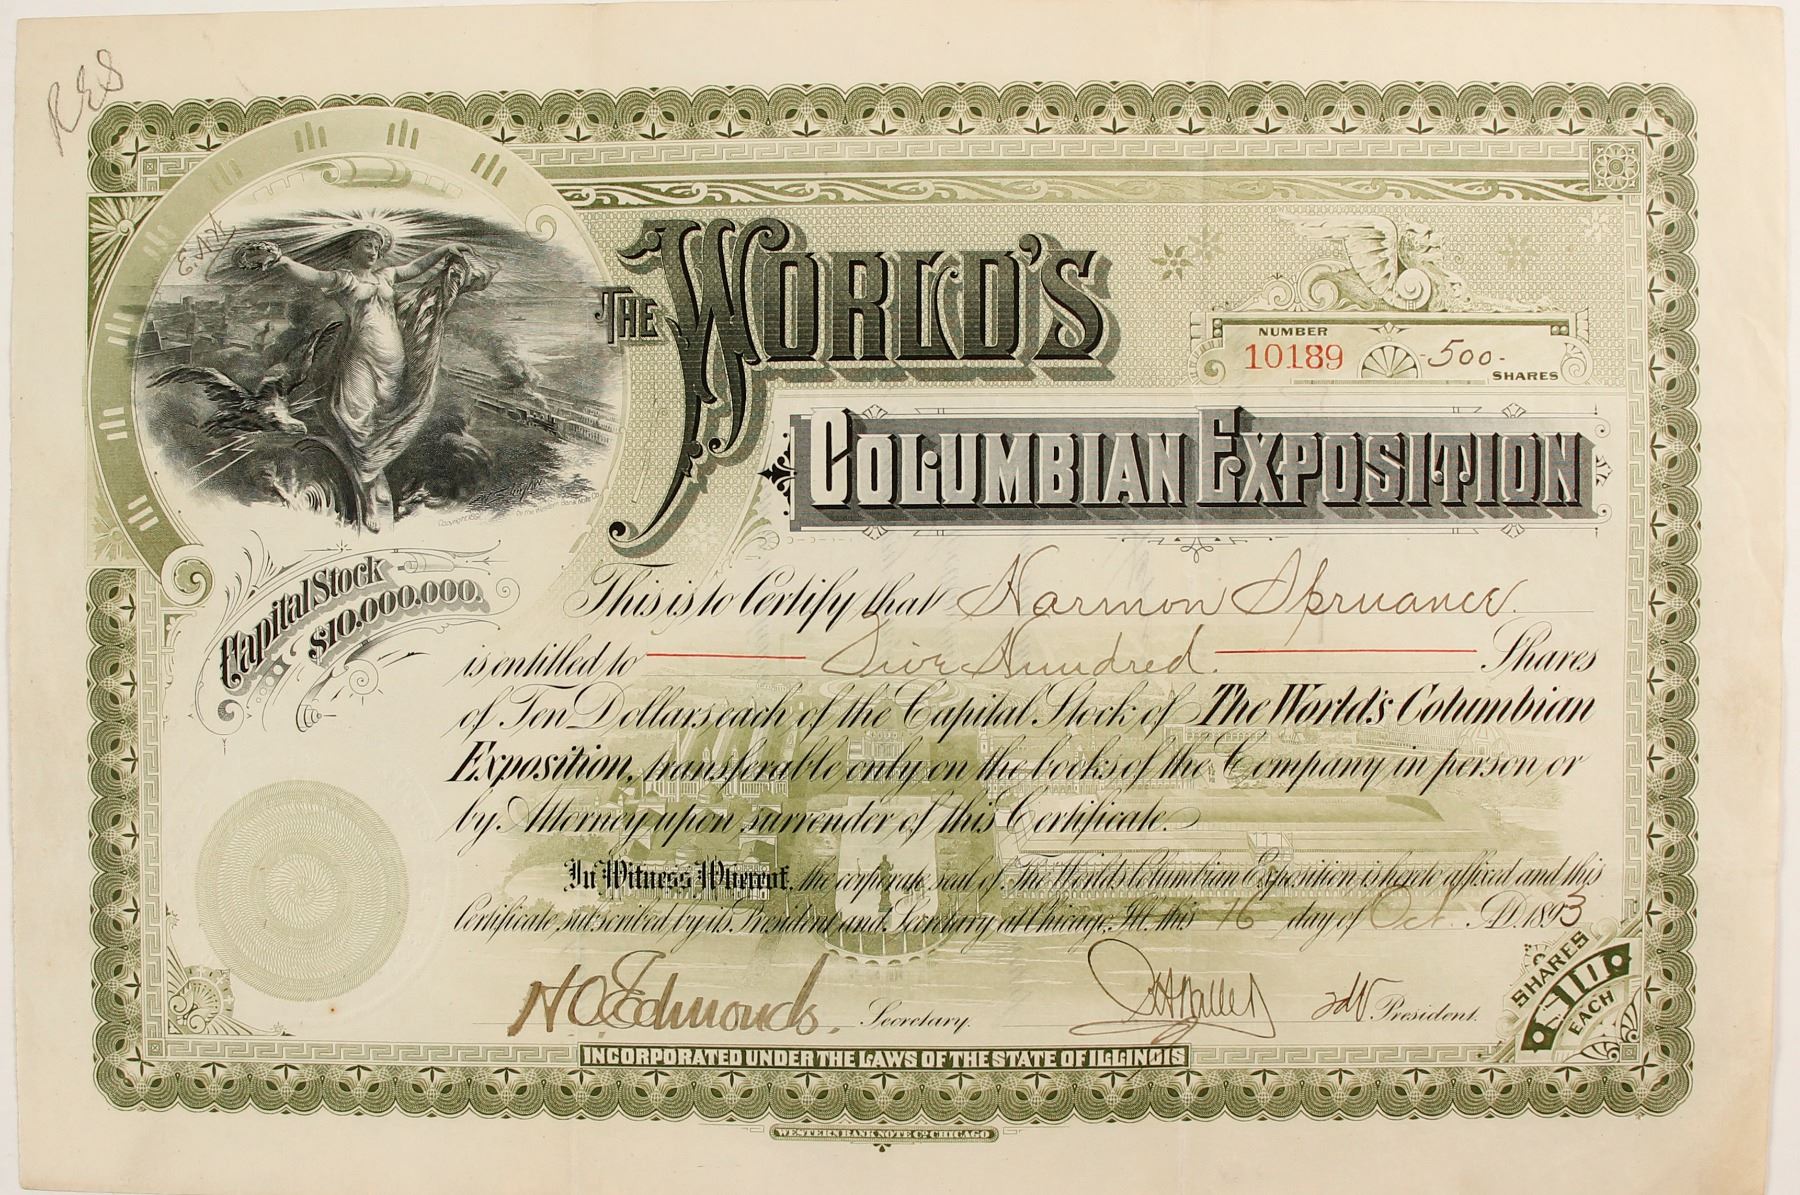 RES
E. Art
THE WORLD'S
NUMBER
10189
-500-
SHARES
COLUMBIAN EXPOSITION
Copyright 1892 by the Western Bank Note Co.
Capital Stock
$10,000,000.
This is to Certify that Harmon Spruance.
is entitled to Five Hundred. Shares
of Ten Dollars each of the Capital Stock of The World's Columbian
Exposition, transferable only on the books of the Company in person or
by Attorney upon surrender of this Certificate.
In Witness Whereof, the corporate seal of The World's Columbian Exposition is hereto affixed and this
Certificate subscribed by its President and Secretary at Chicago, Ill. this 16 day of Oct. A.D. 1893
H O Edmonds. Secretary. President.
SHARES
$10
EACH
INCORPORATED UNDER THE LAWS OF THE STATE OF ILLINOIS
WESTERN BANK NOTE CO. CHICAGO